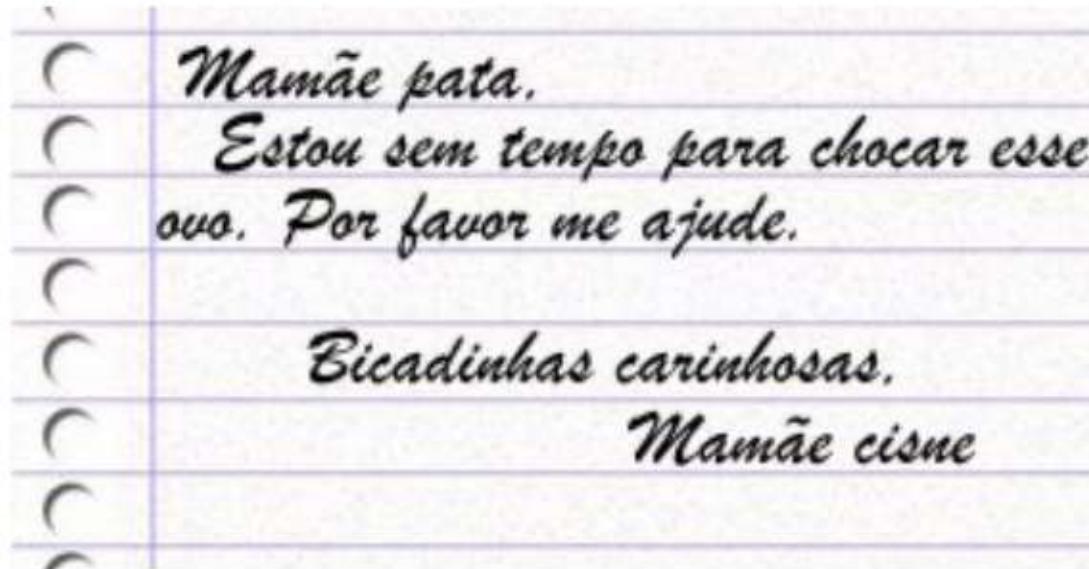 Mamãe pata,
Estou sem tempo para chocar esse
ovo. Por favor me ajude.
Bicadinhas carinhosas,
Mamãe cisne